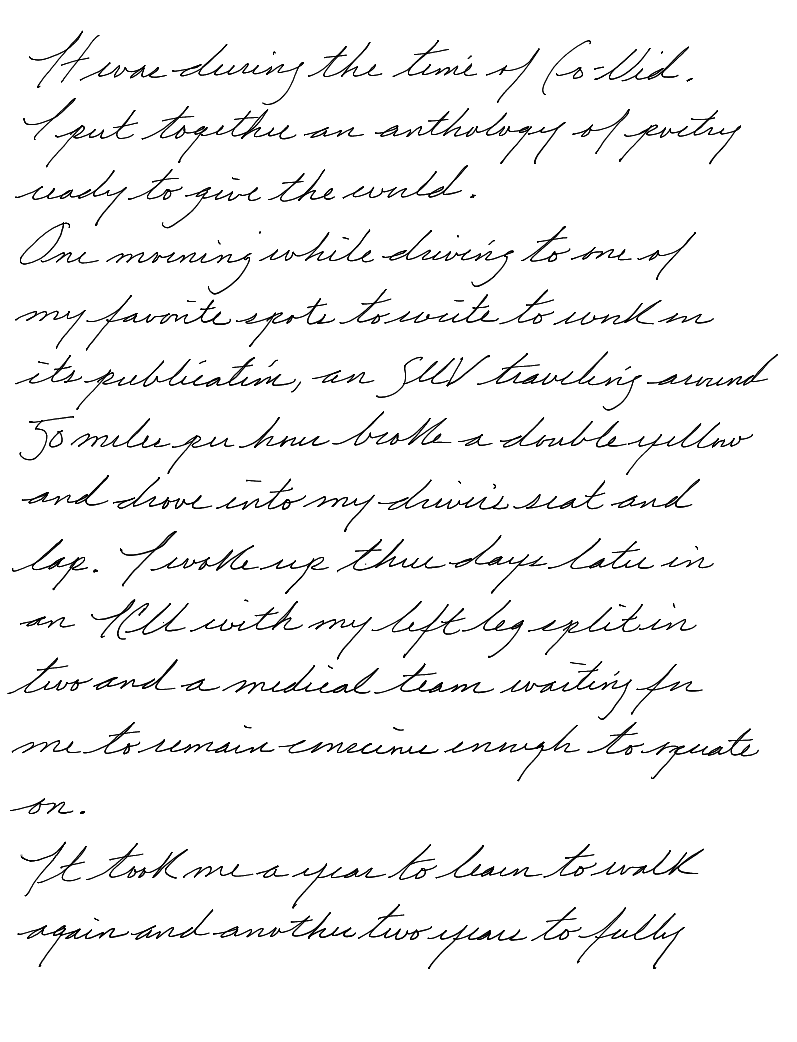 It was during the time of Co-Vid.
I put together an anthology of poetry
ready to give the world.
One morning while driving to one of
my favorite spots to write to work on
its publication, an SUV traveling around
50 miles per hour broke a double yellow
and drove into my driver's seat and
lap. I woke up three days later in
an ICU with my left leg split in
two and a medical team waiting for
me to remain conscious enough to operate
on.
It took me a year to learn to walk
again and another two years to fully